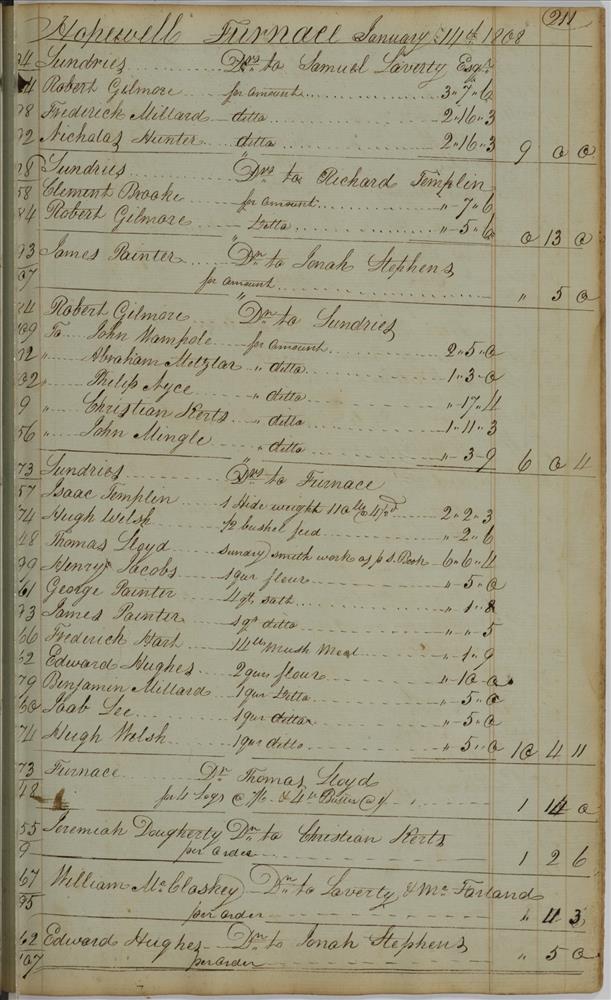 211
Hopewell Furnace January 14th 1808
Sundries Drs to Samuel Laverty Esqr
Robert Gilmore for amount 3 " 7 " 6
98 Frederick Millard ditto 2 " 16 " 3
92 Nicholas Hunter ditto 2 " 16 " 3 9 0 0
98 Sundries Drs to Richard Templin
58 Clement Brooke for amount " 7 " 6
84 Robert Gilmore Ditto " 5 " 6 0 13 0
93 James Painter Dr to Jonah Stephens
107 for amount " 5 0
84 Robert Gilmore Dr to Sundries
109 To John Wampole for amount 2 " 5 " 0
" Abraham Metzlar " ditto 1 " 3 " 0
" Philip Ayce " ditto " 17 " 4
9 " Christian Kerts " ditto 1 " 11 " 3
56 " John Mingle " ditto " 3 " 9 6 0 4
73 Sundries Drs to Furnace
57 Isaac Templin 1 Hide weight 110 lb @ 4½d 2 " 2 " 3
74 Hugh Welsh ½ bushel feed " 2 " 6
48 Thomas Lloyd Sundry smith work as p S. Book 6 " 6 " 4
99 Henry Jacobs 1 qur flour " 5 " 0
61 George Painter 4 qts salt " 1 " 8
93 James Painter 1 qt ditto " " 5
66 Frederick Hart 14 lb Mush Meal " 1 " 9
62 Edward Hughes 2 qurs flour " 10 " 0
79 Benjamin Millard 1 qur Ditto " 5 " 0
60 Joab Lee 1 qur ditto " 5 " 0
74 Hugh Welsh 1 qur ditto " 5 " 0 10 4 11
73 Furnace Dr Thomas Lloyd
48 for 4 Logs @ 7/6 & 4 lb Butter @ 1/ 1 14 0
55 Jeremiah Dougherty Dr to Christian Kerts
9 per order 1 2 6
67 William McClaskey Dr to Laverty & McFarland
95 per order " 11 3
62 Edward Hughes Dr to Jonah Stephens
107 per order " 5 0